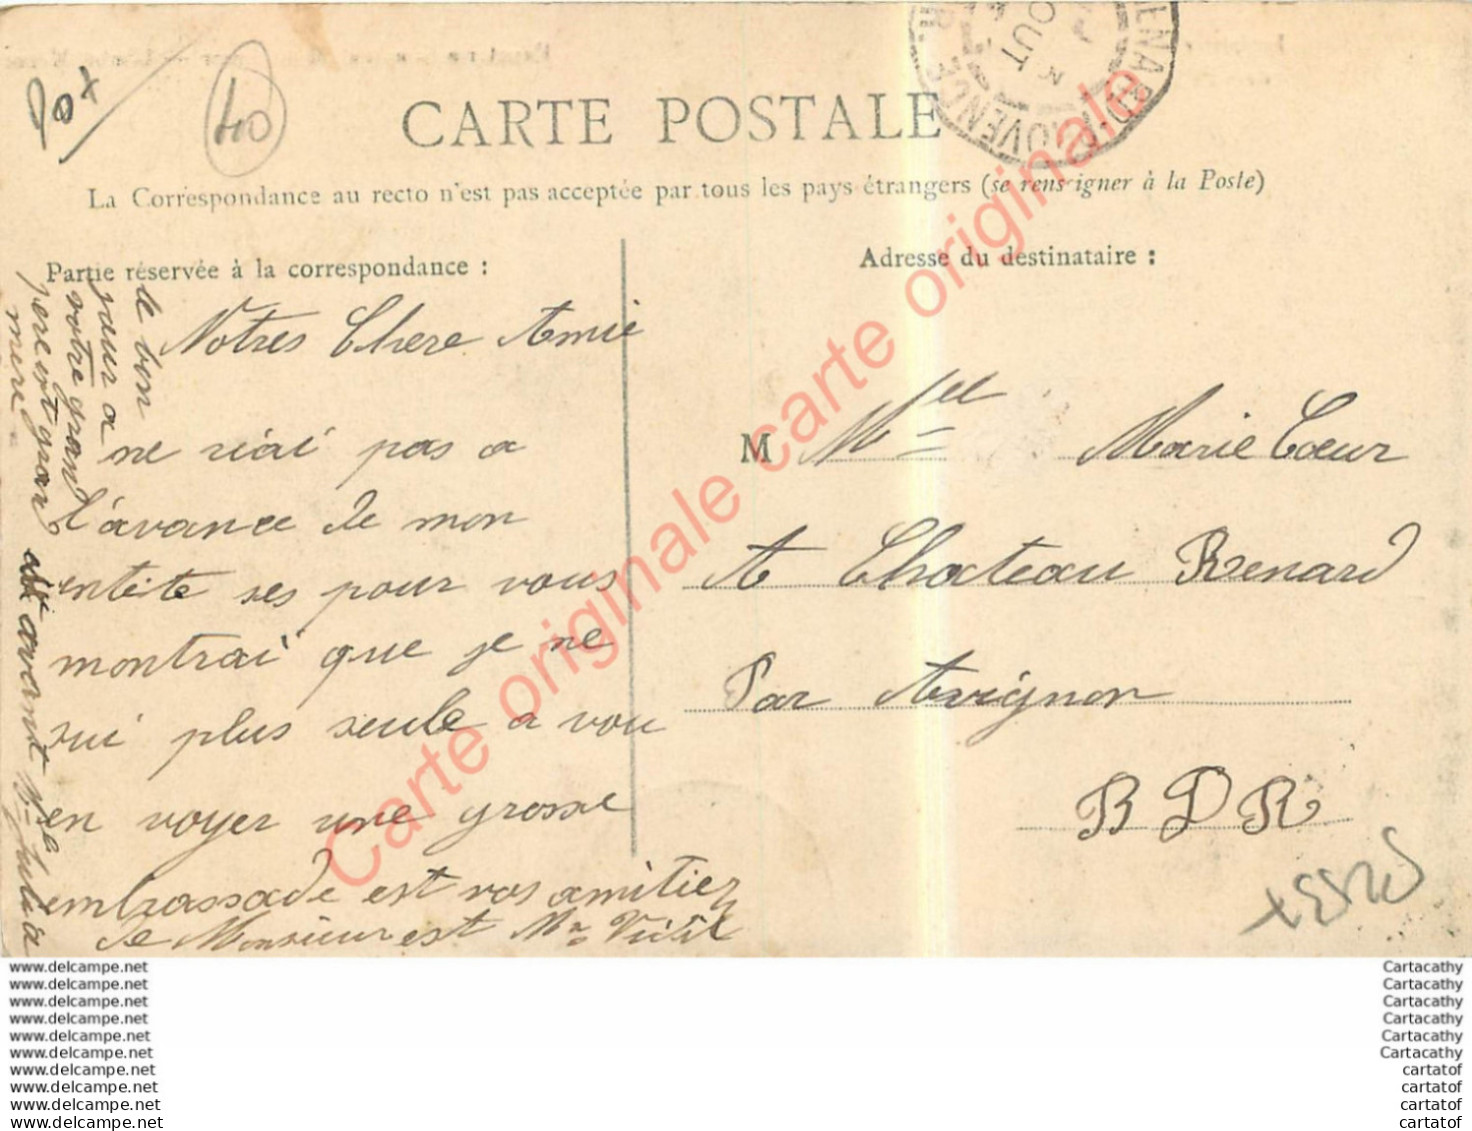 Pot
40
CARTE POSTALE
La Correspondance au recto n'est pas acceptée par tous les pays étrangers (se renseigner à la Poste)
Partie réservée à la correspondance :
Adresse du destinataire :
Notres Chere Amie
ne riai pas a
l'avance de mon
entete ses pour vous
montrai que je ne
sui plus seule a vou
en voyer une grosse
embrassade est vos amitiez
de Monsieur est Mme
le bon
jour a
votre gran
pere est gran
mere
avant Mlle Julia
M Mlle Marie Cœur
A Chateau Renard
Par Avignon
BDR
OUT
ENARD-PROVENCE
R. 3
Carte originale carte originale carte originale
www.delcampe.net
www.delcampe.net
www.delcampe.net
www.delcampe.net
www.delcampe.net
www.delcampe.net
www.delcampe.net
www.delcampe.net
www.delcampe.net
www.delcampe.net
Cartacathy
Cartacathy
Cartacathy
Cartacathy
Cartacathy
Cartacathy
cartatof
cartatof
cartatof
cartatof